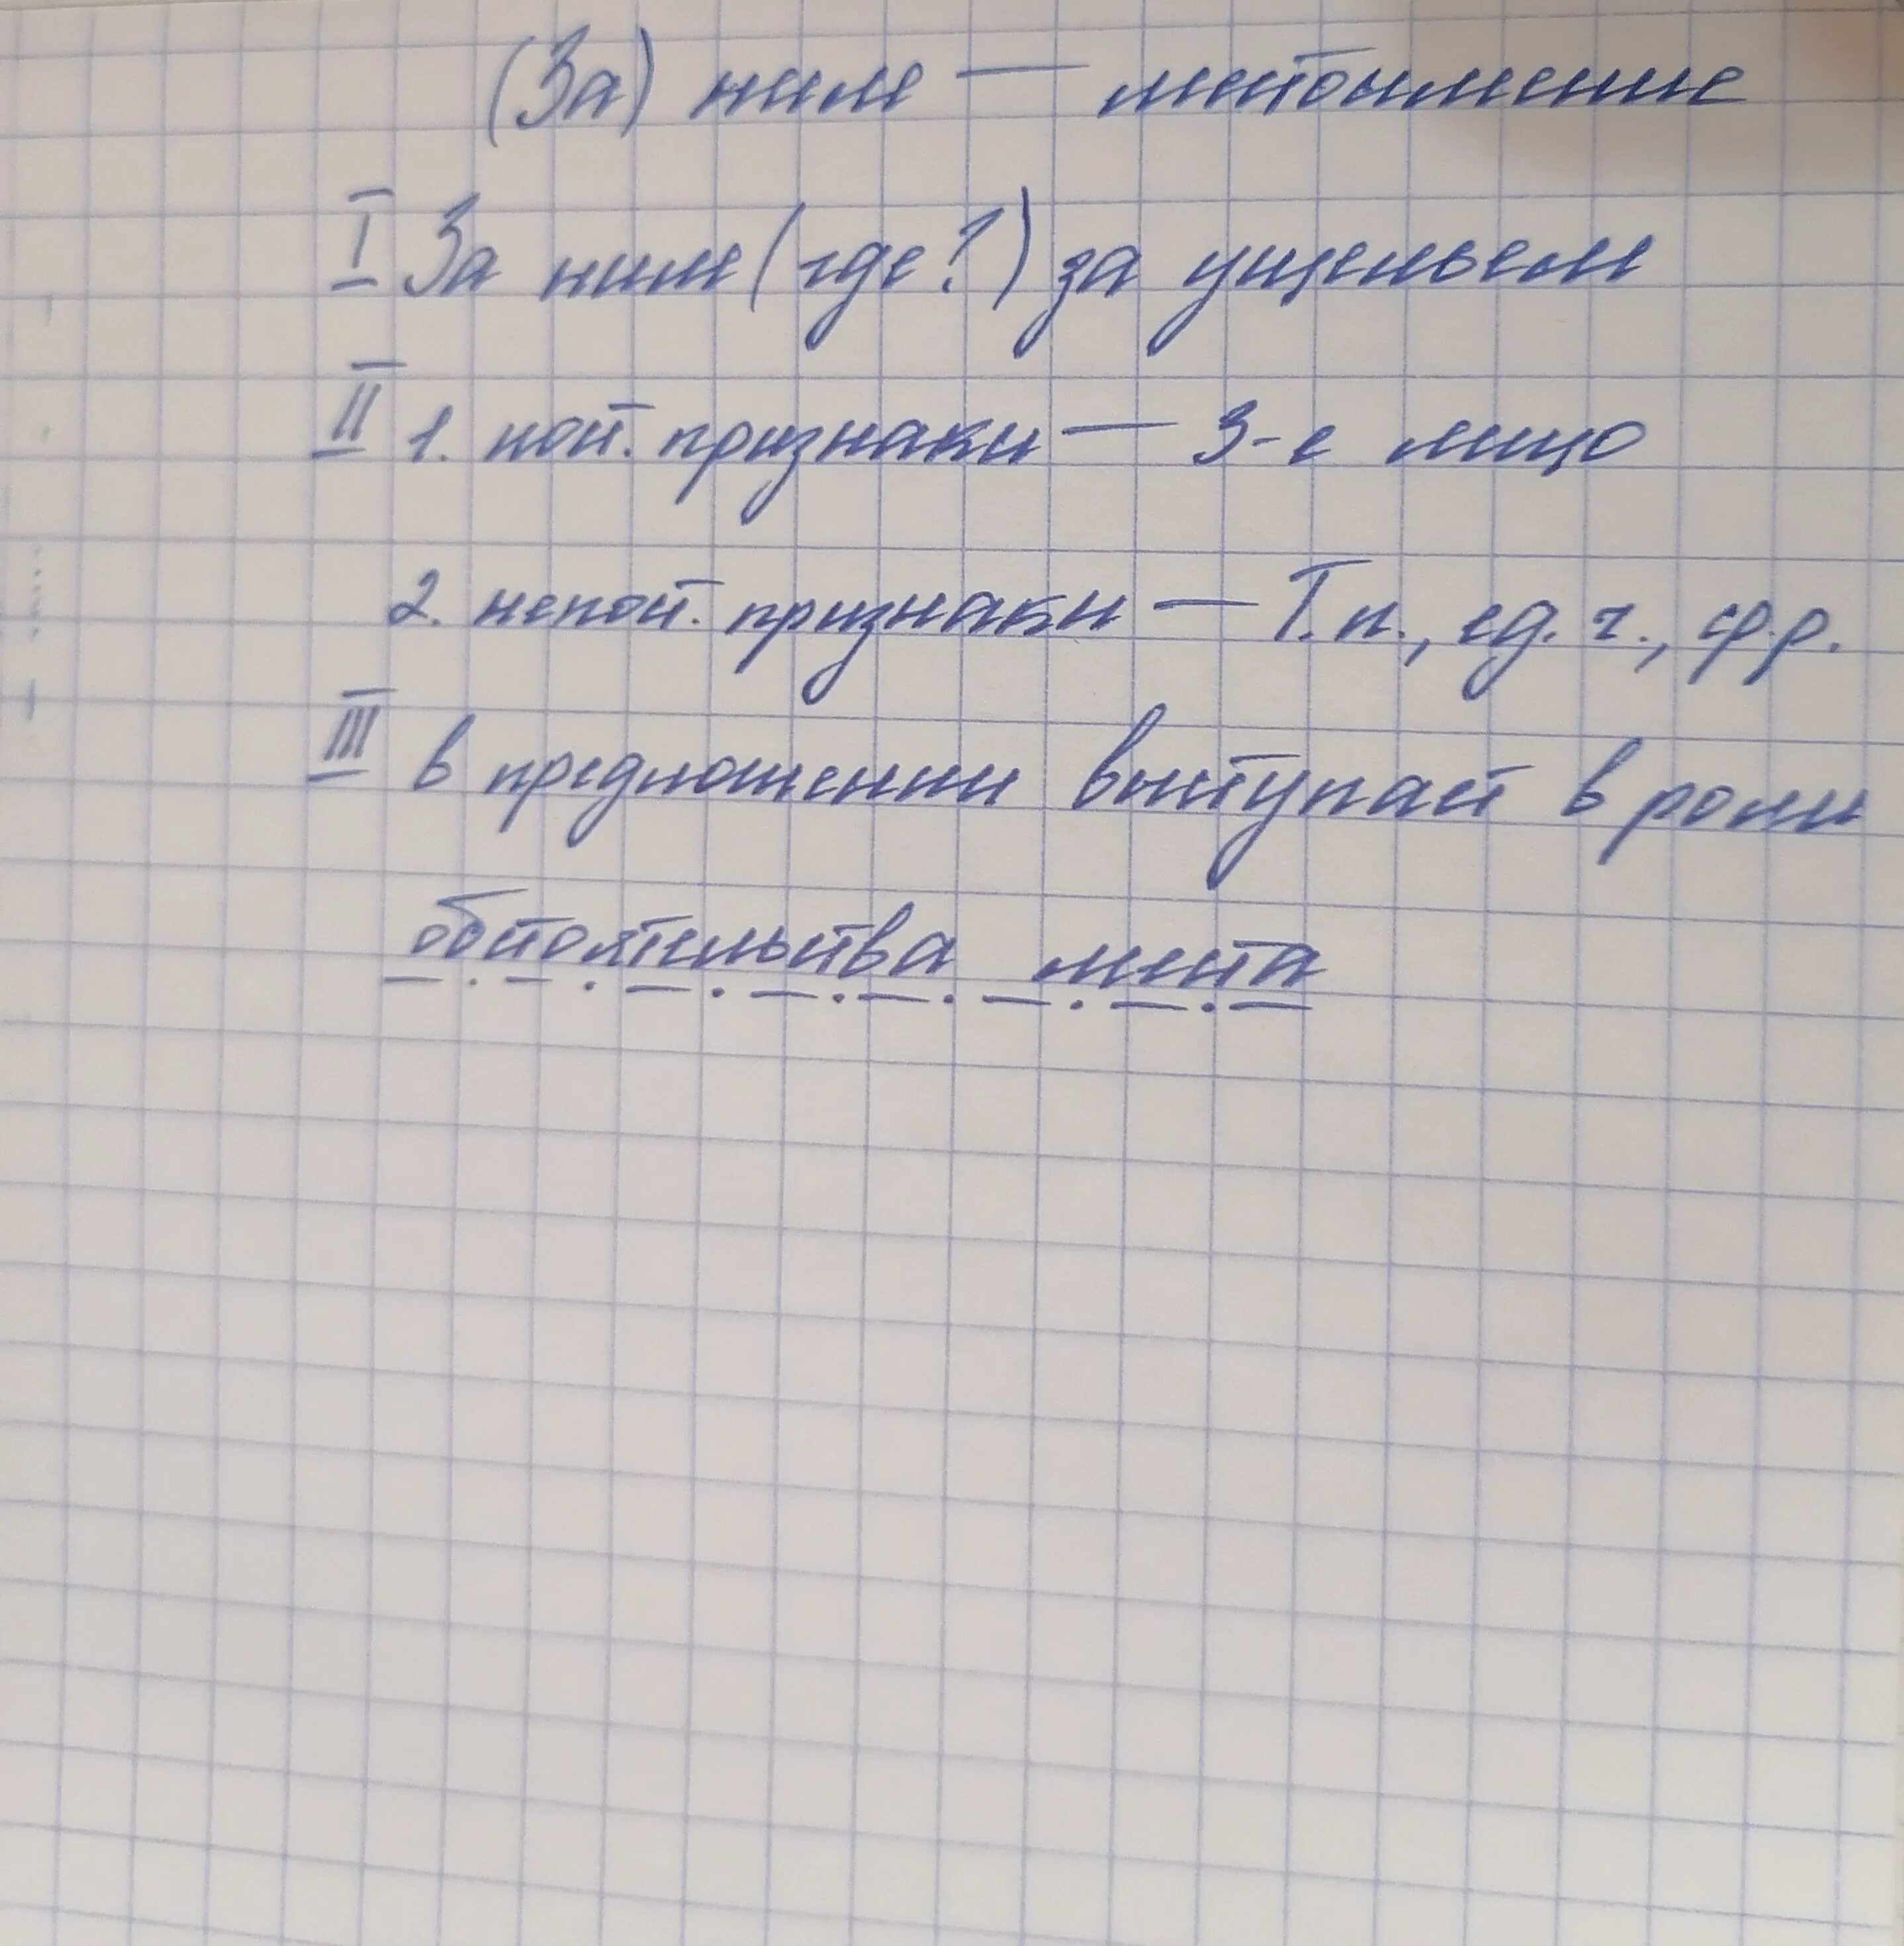 (За) ним — местоимение
I За ним (где?) за ущельем
II 1. пост. признаки — 3-е лицо
2. непост. признаки — Т.п., ед. ч., ср.р.
III в предложении выступает в роли
обстоятельства места